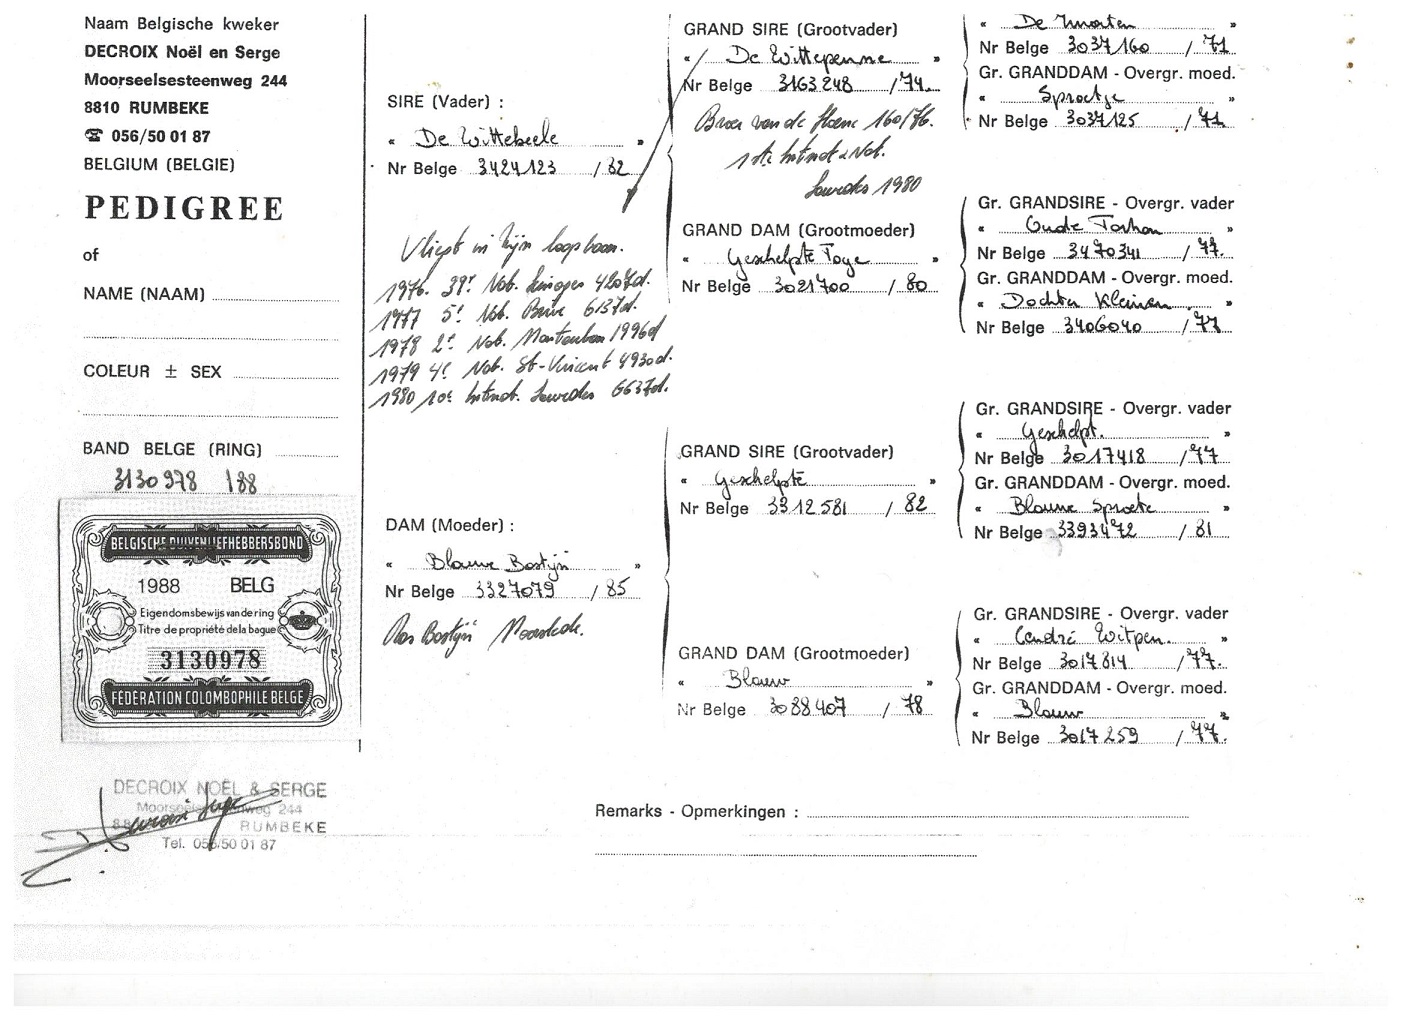 Naam Belgische kweker
DECROIX Noël en Serge
Moorseelsesteenweg 244
8810 RUMBEKE
☎ 056/50 01 87
BELGIUM (BELGIE)
PEDIGREE
of
NAME (NAAM)
COLEUR ± SEX
BAND BELGE (RING)
3130978 188
BELGISCHE DUIVENLIEFHEBBERSBOND
1988 BELG
Eigendomsbewijs van de ring
Titre de propriété de la bague
3130978
FEDERATION COLOMBOPHILE BELGE
DECROIX NOËL & SERGE
Moorseelsesteenweg 244
RUMBEKE
Tel. 056/50 01 87
SIRE (Vader) :
" De Wittebeele "
Nr Belge 3424123 / 82
Vliegt in zijn loopbaan.
1976. 39e Nat. Limoges 4207d.
1977 5e Nat. Brive 6137d.
1978 2e Nat. Montauban 1996d
1979 4e Nat. St-Vincent 4930d.
1980 10e Intnat. Lourdes 6637d.
DAM (Moeder) :
" Blauwe Bostijn "
Nr Belge 3327079 / 85
Ras Bostijn Moorslede.
GRAND SIRE (Grootvader)
" De Wittepenne "
Nr Belge 3163248 / 74.
Broer van de 160/76.
1ste Intnat Nat.
Lourdes 1980
GRAND DAM (Grootmoeder)
" Geschelpte Toye "
Nr Belge 3021700 / 80
GRAND SIRE (Grootvader)
" Geschelpte "
Nr Belge 3312581 / 82
GRAND DAM (Grootmoeder)
" Blauw "
Nr Belge 3088407 / 78
" De "
Nr Belge 3037160 / 71
Gr. GRANDDAM - Overgr. moed.
" Sproetje "
Nr Belge 3037125 / 71
Gr. GRANDSIRE - Overgr. vader
" Oude "
Nr Belge 3470341 / 77.
Gr. GRANDDAM - Overgr. moed.
" Dochter Kleinen "
Nr Belge 3406040 / 77
Gr. GRANDSIRE - Overgr. vader
" Geschelpt. "
Nr Belge 3017418 / 77
Gr. GRANDDAM - Overgr. moed.
" Blauwe Sproete "
Nr Belge 3393472 / 81
Gr. GRANDSIRE - Overgr. vader
" Cendré Witpen. "
Nr Belge 3017814 / 77.
Gr. GRANDDAM - Overgr. moed.
" Blauw "
Nr Belge 3017259 / 77.
Remarks - Opmerkingen :